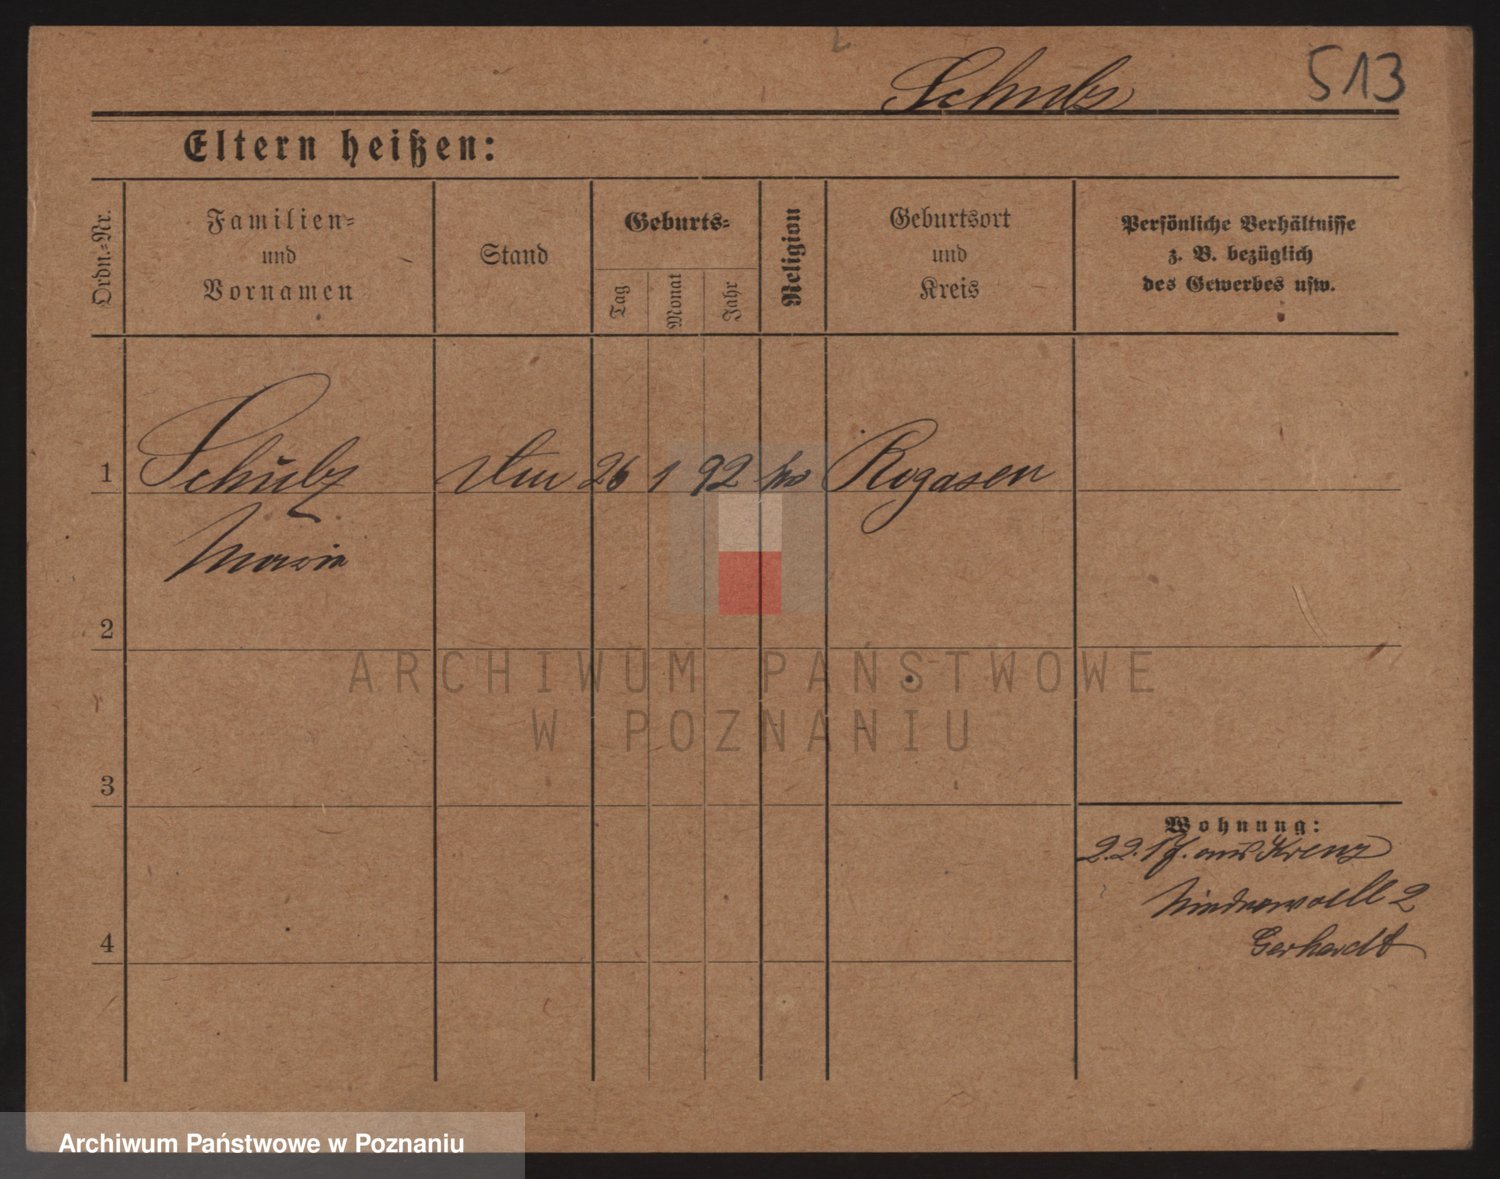 Schulz 513
Eltern heißen:
Ordn.-Nr.
Familien-
und
Vornamen
Stand
Geburts-
Tag
Monat
Jahr
Religion
Geburtsort
und
Kreis
Persönliche Verhältnisse
z. B. bezüglich
des Gewerbes usw.
1 Schulz 26 1 92 Rogasen
Maria
2
ARCHIWUM PAŃSTWOWE
W POZNANIU
3
Wohnung:
2.2.17. aus Kreuz
2
Gerhardt
4
Archiwum Państwowe w Poznaniu